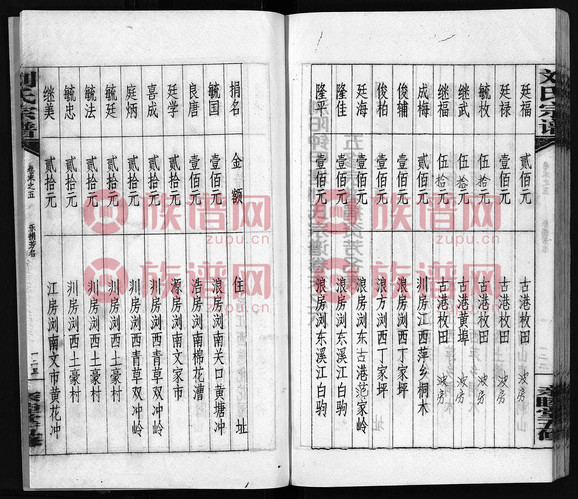 刘氏宗谱
廷福 贰佰元 古港枚田 浚房
廷禄 壹佰元 古港枚田 浚房
毓枚 伍拾元 古港枚田 浚房
继武 伍拾元 古港黄埠 浚房
继福 伍拾元 古港枚田 浚房
成梅 贰佰元 圳房江西萍乡桐木
俊辅 壹佰元 浪房浏西丁家坪
俊柏 壹佰元 浪方浏西丁家坪
廷海 壹佰元 浪房浏东古港范家岭
隆佳 壹佰元 浪房浏东溪江白驹
隆平 壹佰元 浪房浏东溪江白驹
捐名 金额 住址
毓国 壹佰元 浪房浏南关口黄塘冲
良唐 壹佰元 浩房浏南棉花漕
廷学 壹佰元 源房浏南文家市
喜成 贰拾元 圳房浏西青草双冲岭
庭炳 贰拾元 圳房浏西青草双冲岭
毓廷 贰拾元 圳房浏西土豪村
毓法 贰拾元 圳房浏西土豪村
毓忠 贰拾元 圳房浏西土豪村
继美 贰拾元 江房浏南文市黄花冲
刘氏宗谱
卷末之五
乐捐芳名
族谱网
zupu.cn
族谱网
zupu.cn
族谱网
zupu.cn
族谱网
zupu.cn